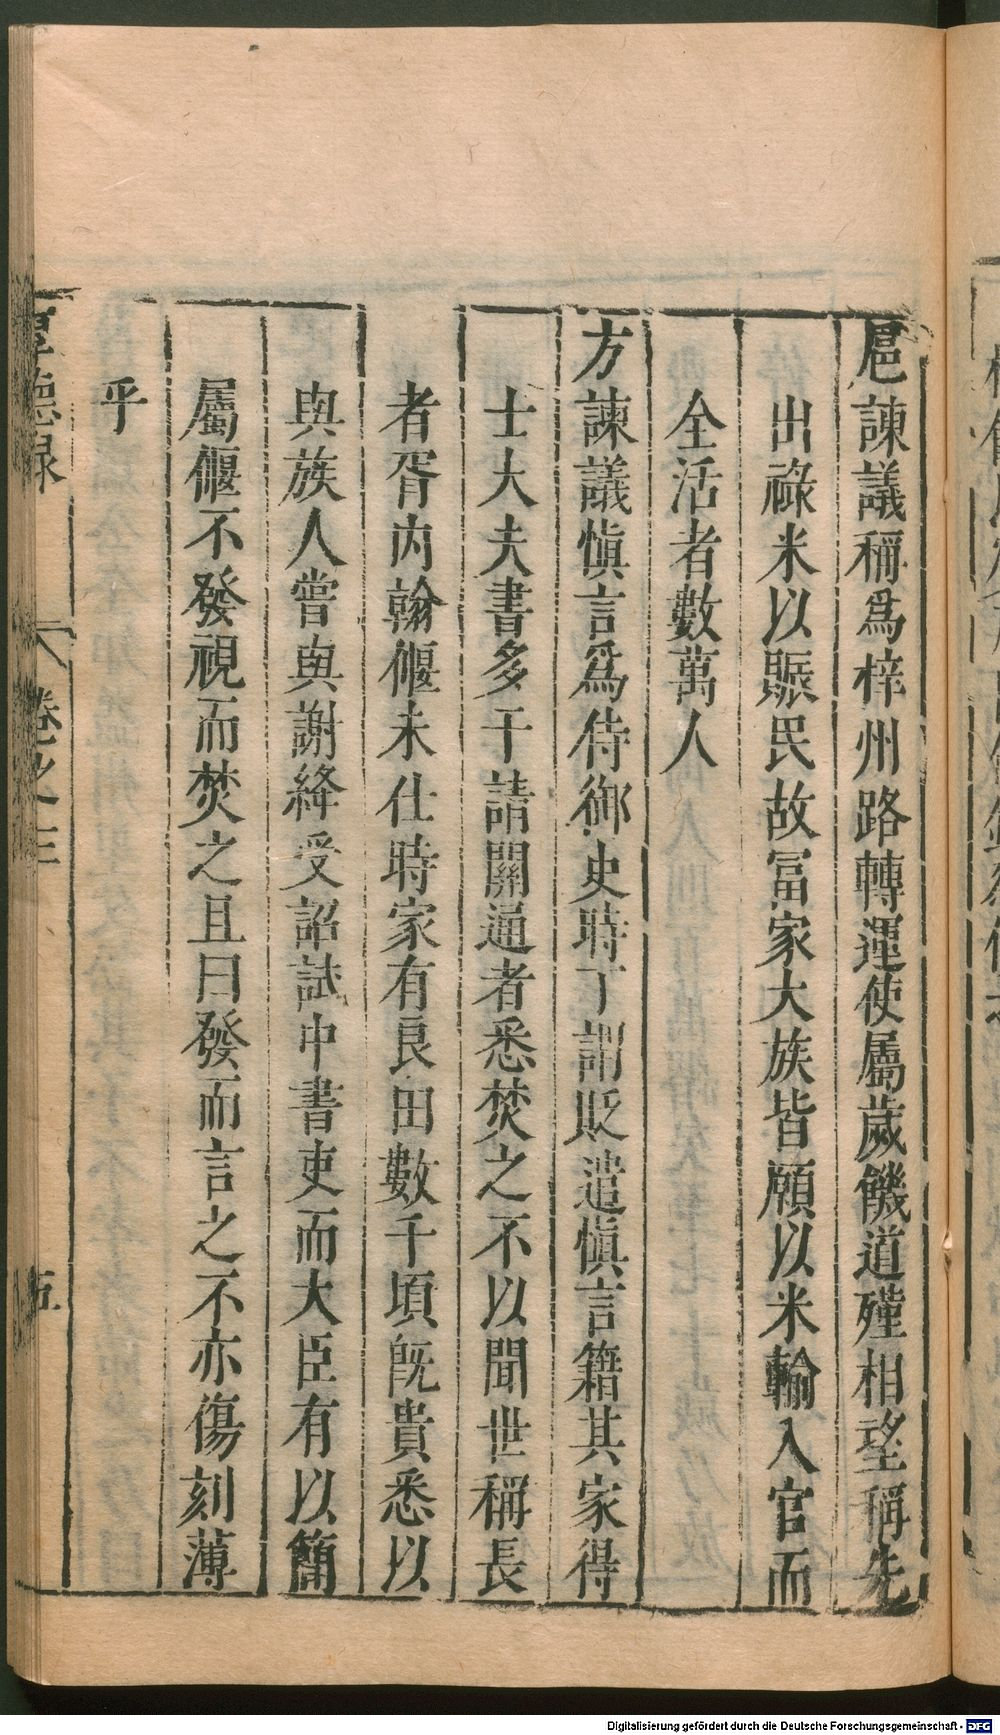 扈諫議稱爲梓州路轉運使屬歲饑道殣相望稱先
出祿米以賑民故富家大族皆願以米輸入官而
全活者數萬人
方諫議愼言爲侍御史時丁謂貶遣愼言籍其家得
士大夫書多干請關通者悉焚之不以聞世稱長
者胥內翰偃未仕時家有良田數千頃旣貴悉以
與族人嘗與謝絳受詔試中書吏而大臣有以簡
屬偃不發視而焚之且曰發而言之不亦傷刻薄
乎
厚德錄 卷之三 五
Digitalisierung gefördert durch die Deutsche Forschungsgemeinschaft - DFG